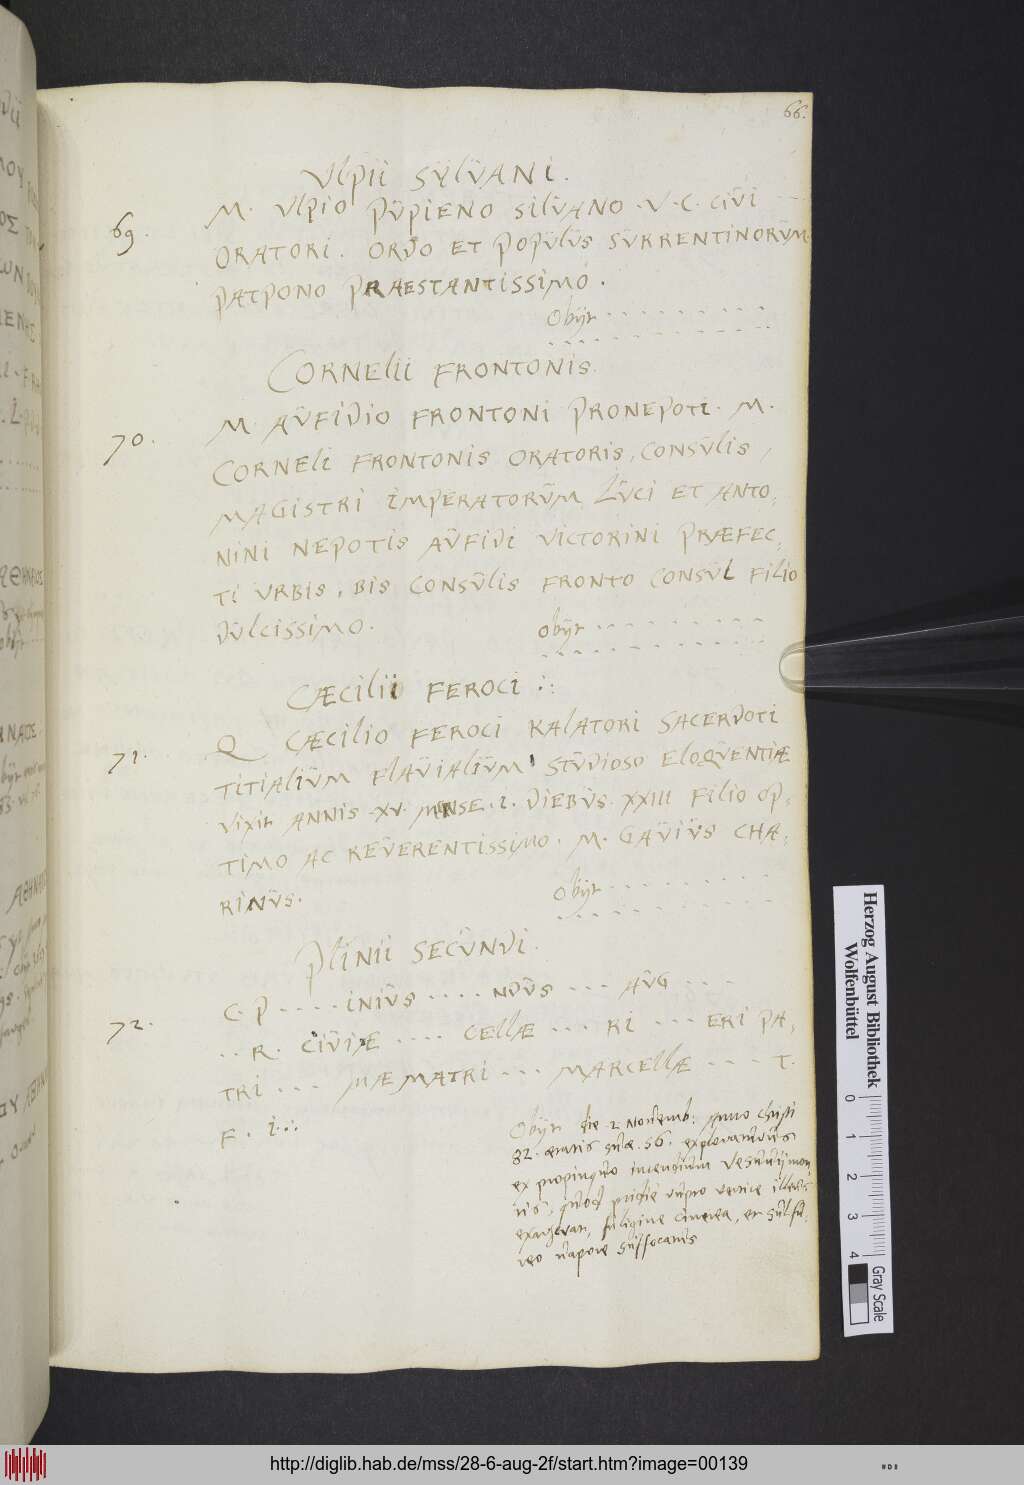 66.
Ulpii Sÿlüani.
69. M. Ulpio Püpieno Silüano .V.C. Ciüi
Oratori. Ordo et Popülüs Sürrentinorüm
Patpono Praestantissimo.
Obÿt ........
Cornelii Frontonis.
70. M. Aüfidio Frontoni Pronepoti. M.
Corneli Frontonis Oratoris, Consülis,
Magistri Imperatorüm Lüci et Anto,
nini nepotis Aüfidi Victorini Præfec,
ti Urbis, bis Consülis Fronto Consül Filio
Dülcissimo.
Obÿt ........
Cæcilii Feroci ∴
71. Q Cæcilio Feroci Kalatori Sacerdoti
Titialiüm Flaüialiüm Stüdioso Eloqüentiæ
Vixit Annis .XV. Mense .I. Diebüs. XXIII Filio op,
timo ac Reüerentissimo. M. Gaüiüs Cha,
rinüs.
Obÿt ........
Plinii Secündi.
72. C. P .... iniüs .... ndüs ... Aüg ....
.. R. Ciüiæ .... Cellæ ... ri ... eri pa,
tri .... mæ matri ... Marcellæ .... T.
F. I. ∴
Obÿt die 2 Nouemb: Anno Chrsti
82. ætatis süæ .56. exploraturüs
ex propinqüo incendium Vesüuij mon,
tis, qüod pridie
füligine cinerea, et sülfü,
reo üapore süffocatüs
Herzog August Bibliothek
Wolfenbüttel
0 1 2 3 4
Gray Scale
http://diglib.hab.de/mss/28-6-aug-2f/start.htm?image=00139